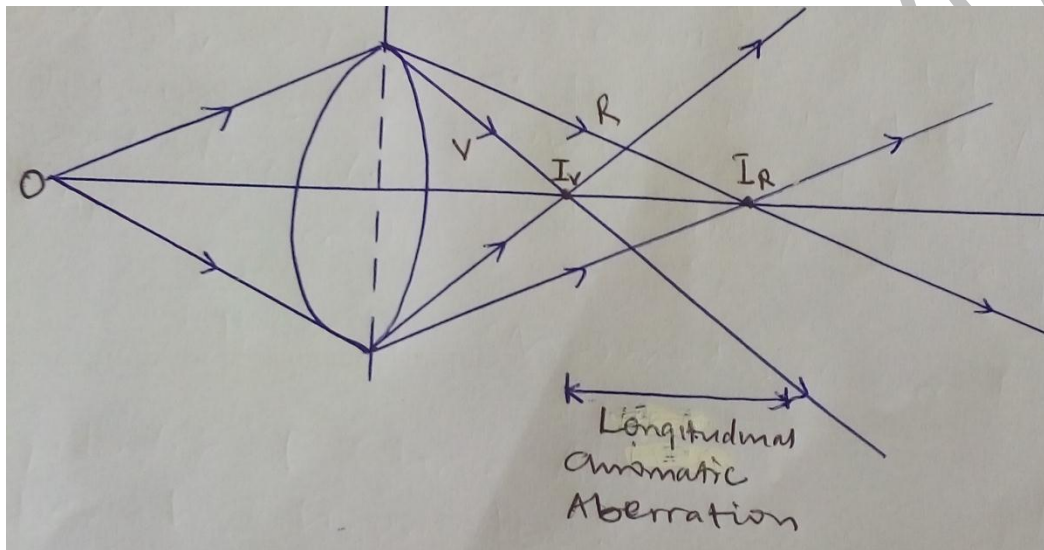 O
V
R
Iv
IR
Longitudinal
Chromatic
Aberration